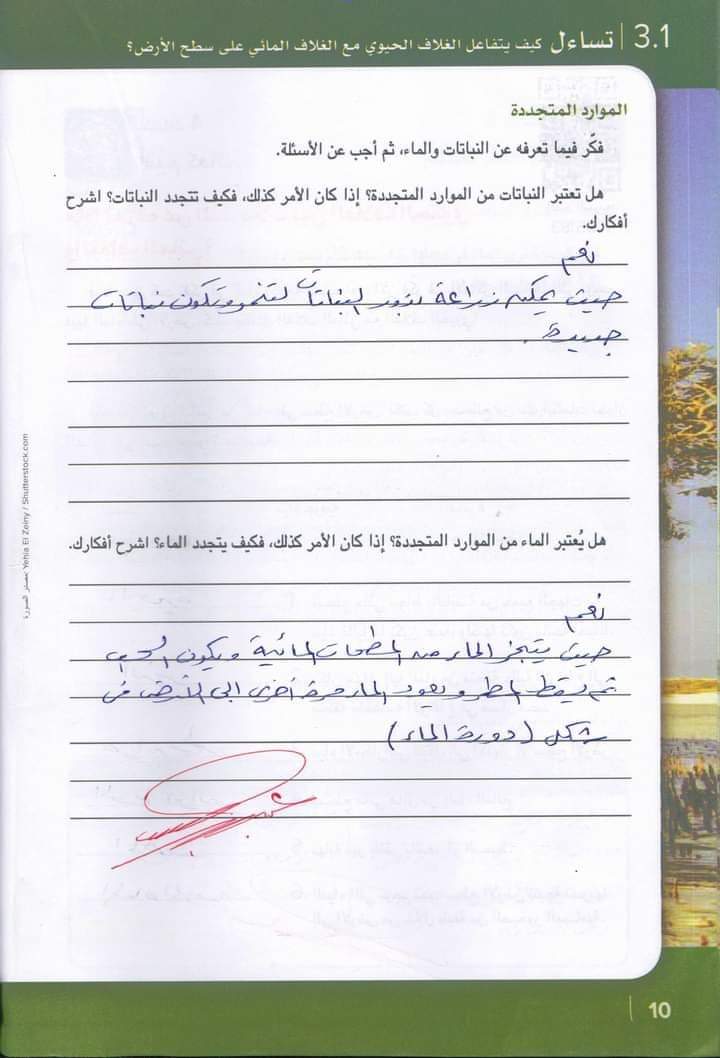 3.1 | تساءل كيف يتفاعل الغلاف الحيوي مع الغلاف المائي على سطح الأرض؟
الموارد المتجددة
فكّر فيما تعرفه عن النباتات والماء، ثم أجب عن الأسئلة.
هل تعتبر النباتات من الموارد المتجددة؟ إذا كان الأمر كذلك، فكيف تتجدد النباتات؟ اشرح
أفكارك.
نعم
حيث يمكن زراعة بذور النباتات لتنمو وتكون نباتات
جديدة.
هل يُعتبر الماء من الموارد المتجددة؟ إذا كان الأمر كذلك، فكيف يتجدد الماء؟ اشرح أفكارك.
نعم
حيث يتبخر الماء من المسطحات المائية ويكون السحب
ثم يسقط المطر ويعود الماء مرة أخرى الى الأرض فى
شكل (دورة الماء)
مصدر الصورة: Yehia El Zeiny / Shutterstock.com
10